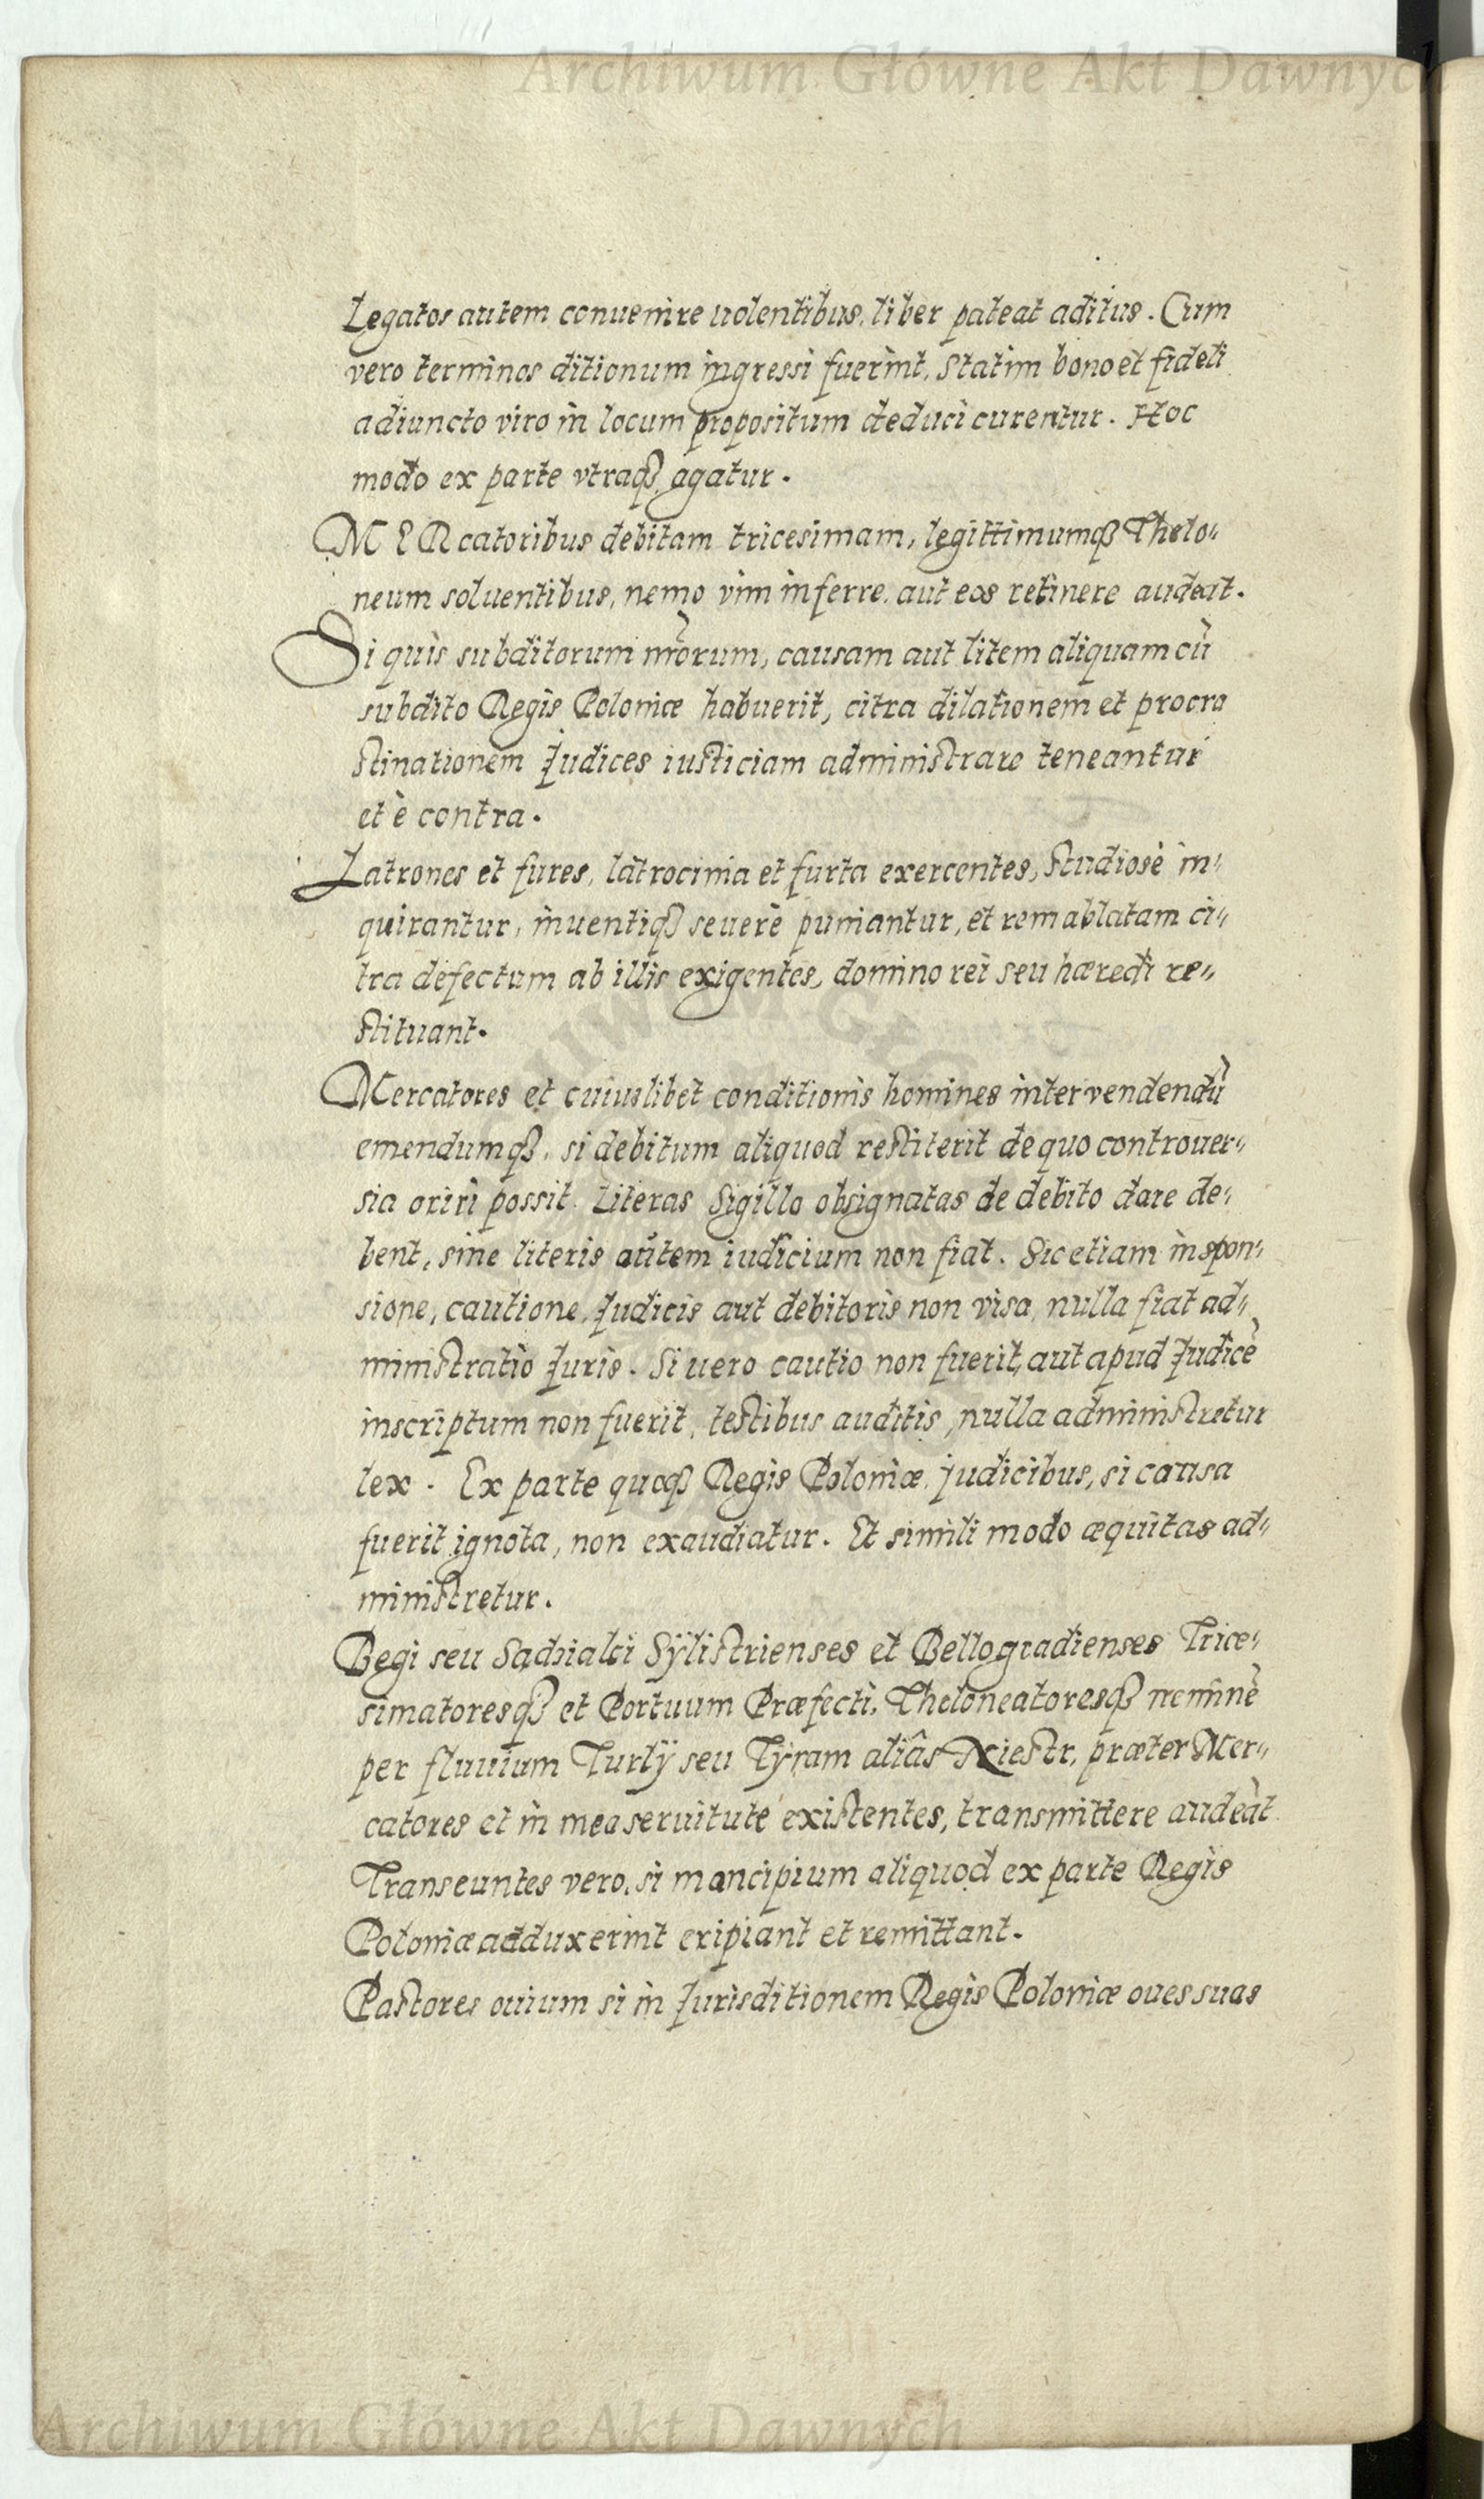 Archiwum Główne Akt Dawnych
Legatos autem conuenire uolentibus, liber pateat aditus. Cum
vero terminos ditionum ingressi fuerint, Statim bono et fideli
adiuncto viro in locum propositum deduci curentur. Hoc
modo ex parte vtraqꝫ agatur.
MERcatoribus debitam tricesimam, legittimumqꝫ Thelo„
neum soluentibus, nemo vim inferre, aut eos retinere audeat.
Si quis subditorum nr̃orum, causam aut litem aliquam cũ
subdito Regis Poloniæ habuerit, citra dilationem et procra
stinationem Judices iusticiam administrare teneantur
et è contra.
Latrones et fures, latrocinia et furta exercentes, Studiosè in„
quirantur, inuentiqꝫ seuerè puniantur, et rem ablatam ci„
tra defectum ab illis exigentes, domino rei seu hæredi re„
stituant.
Mercatores et cuiuslibet conditionis homines inter vendendũ
emendumqꝫ, si debitum aliquod restiterit de quo controuer„
sia oriri possit. Literas Sigillo obsignatas de debito dare de„
bent, sine literis autem iudicium non fiat. Sic etiam in spon„
sione, cautione, Judicis aut debitoris non visa, nulla fiat ad„
ministratio Juris. Si uero cautio non fuerit, aut apud Judicẽ
inscriptum non fuerit, testibus auditis, nulla administretur
lex. Ex parte quoqꝫ Regis Poloniæ, judicibus, si causa
fuerit ignota, non exaudiatur. Et simili modo æquitas ad„
ministretur.
Begi seu Sadziaki Sÿlistrienses et Bellogradienses Trice„
simatoresqꝫ et Portuum Præfecti, Theloneatoresqꝫ neminẽ
per fluuium Turlÿ seu Tÿram aliâs Niestr, præter Mer„
catores et in mea seruitute existentes, transmittere audeãt
Transeuntes vero, si mancipium aliquod ex parte Regis
Poloniæ adduxerint eripiant et remittant.
Pastores ouium si in Jurisditionem Regis Poloniæ oues suas
Archiwum Główne Akt Dawnych